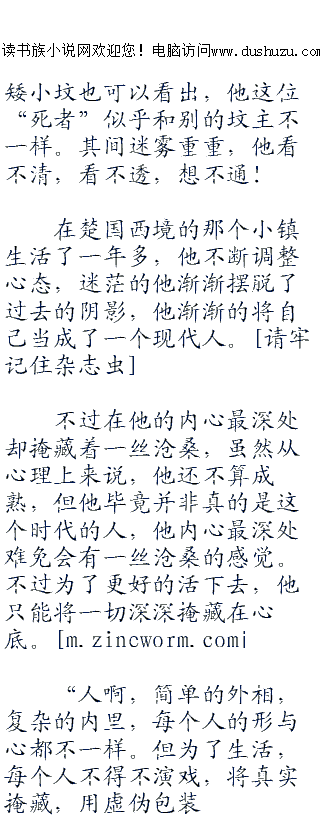 读书族小说网欢迎您！电脑访问www.dushuzu.com
矮小坟也可以看出，他这位
“死者”似乎和别的坟主不
一样。其间迷雾重重，他看
不清，看不透，想不通！
在楚国西境的那个小镇
生活了一年多，他不断调整
心态，迷茫的他渐渐摆脱了
过去的阴影，他渐渐的将自
己当成了一个现代人。[请牢
记住杂志虫]
不过在他的内心最深处
却掩藏着一丝沧桑，虽然从
心理上来说，他还不算成
熟，但他毕竟并非真的是这
个时代的人，他内心最深处
难免会有一丝沧桑的感觉。
不过为了更好的活下去，他
只能将一切深深掩藏在心
底。[m.zincworm.com]
“人啊，简单的外相，
复杂的内里，每个人的形与
心都不一样。但为了生活，
每个人不得不演戏，将真实
掩藏，用虚伪包装